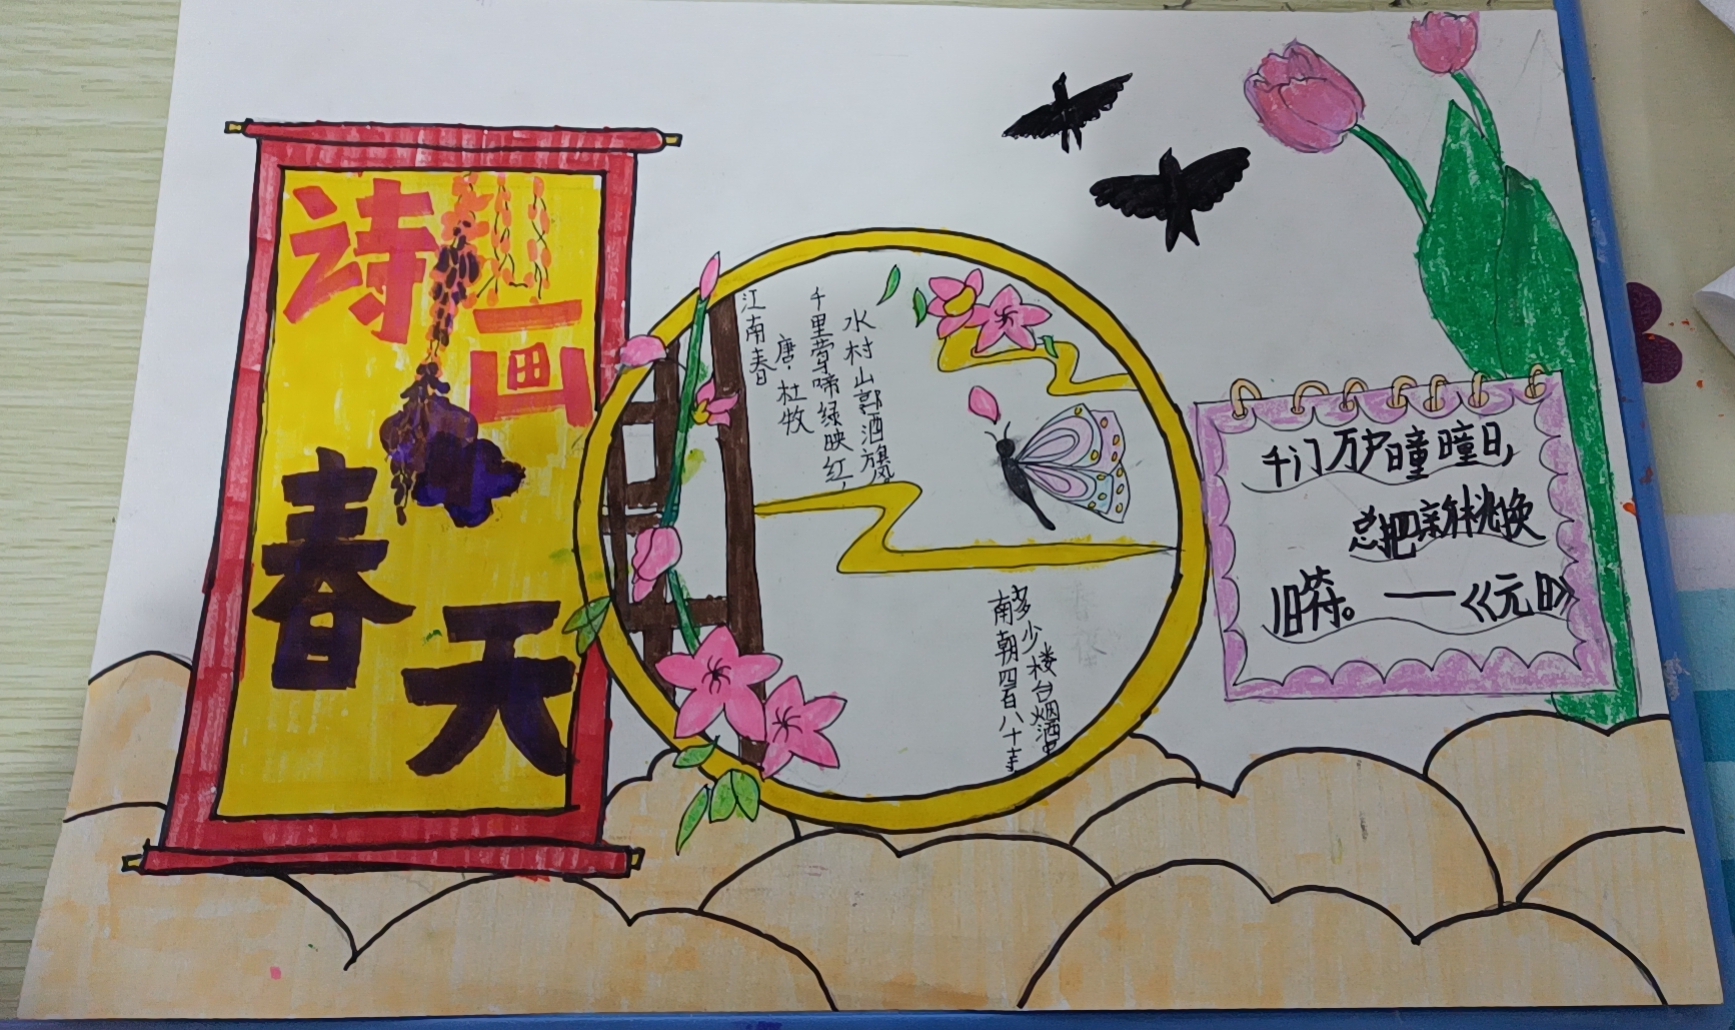 诗画
春天
江南春
唐·杜牧
千里莺啼绿映红，
水村山郭酒旗
南朝四百八十
多少楼台烟
千门万户曈曈日，
总把新桃换
旧符。——《元日》